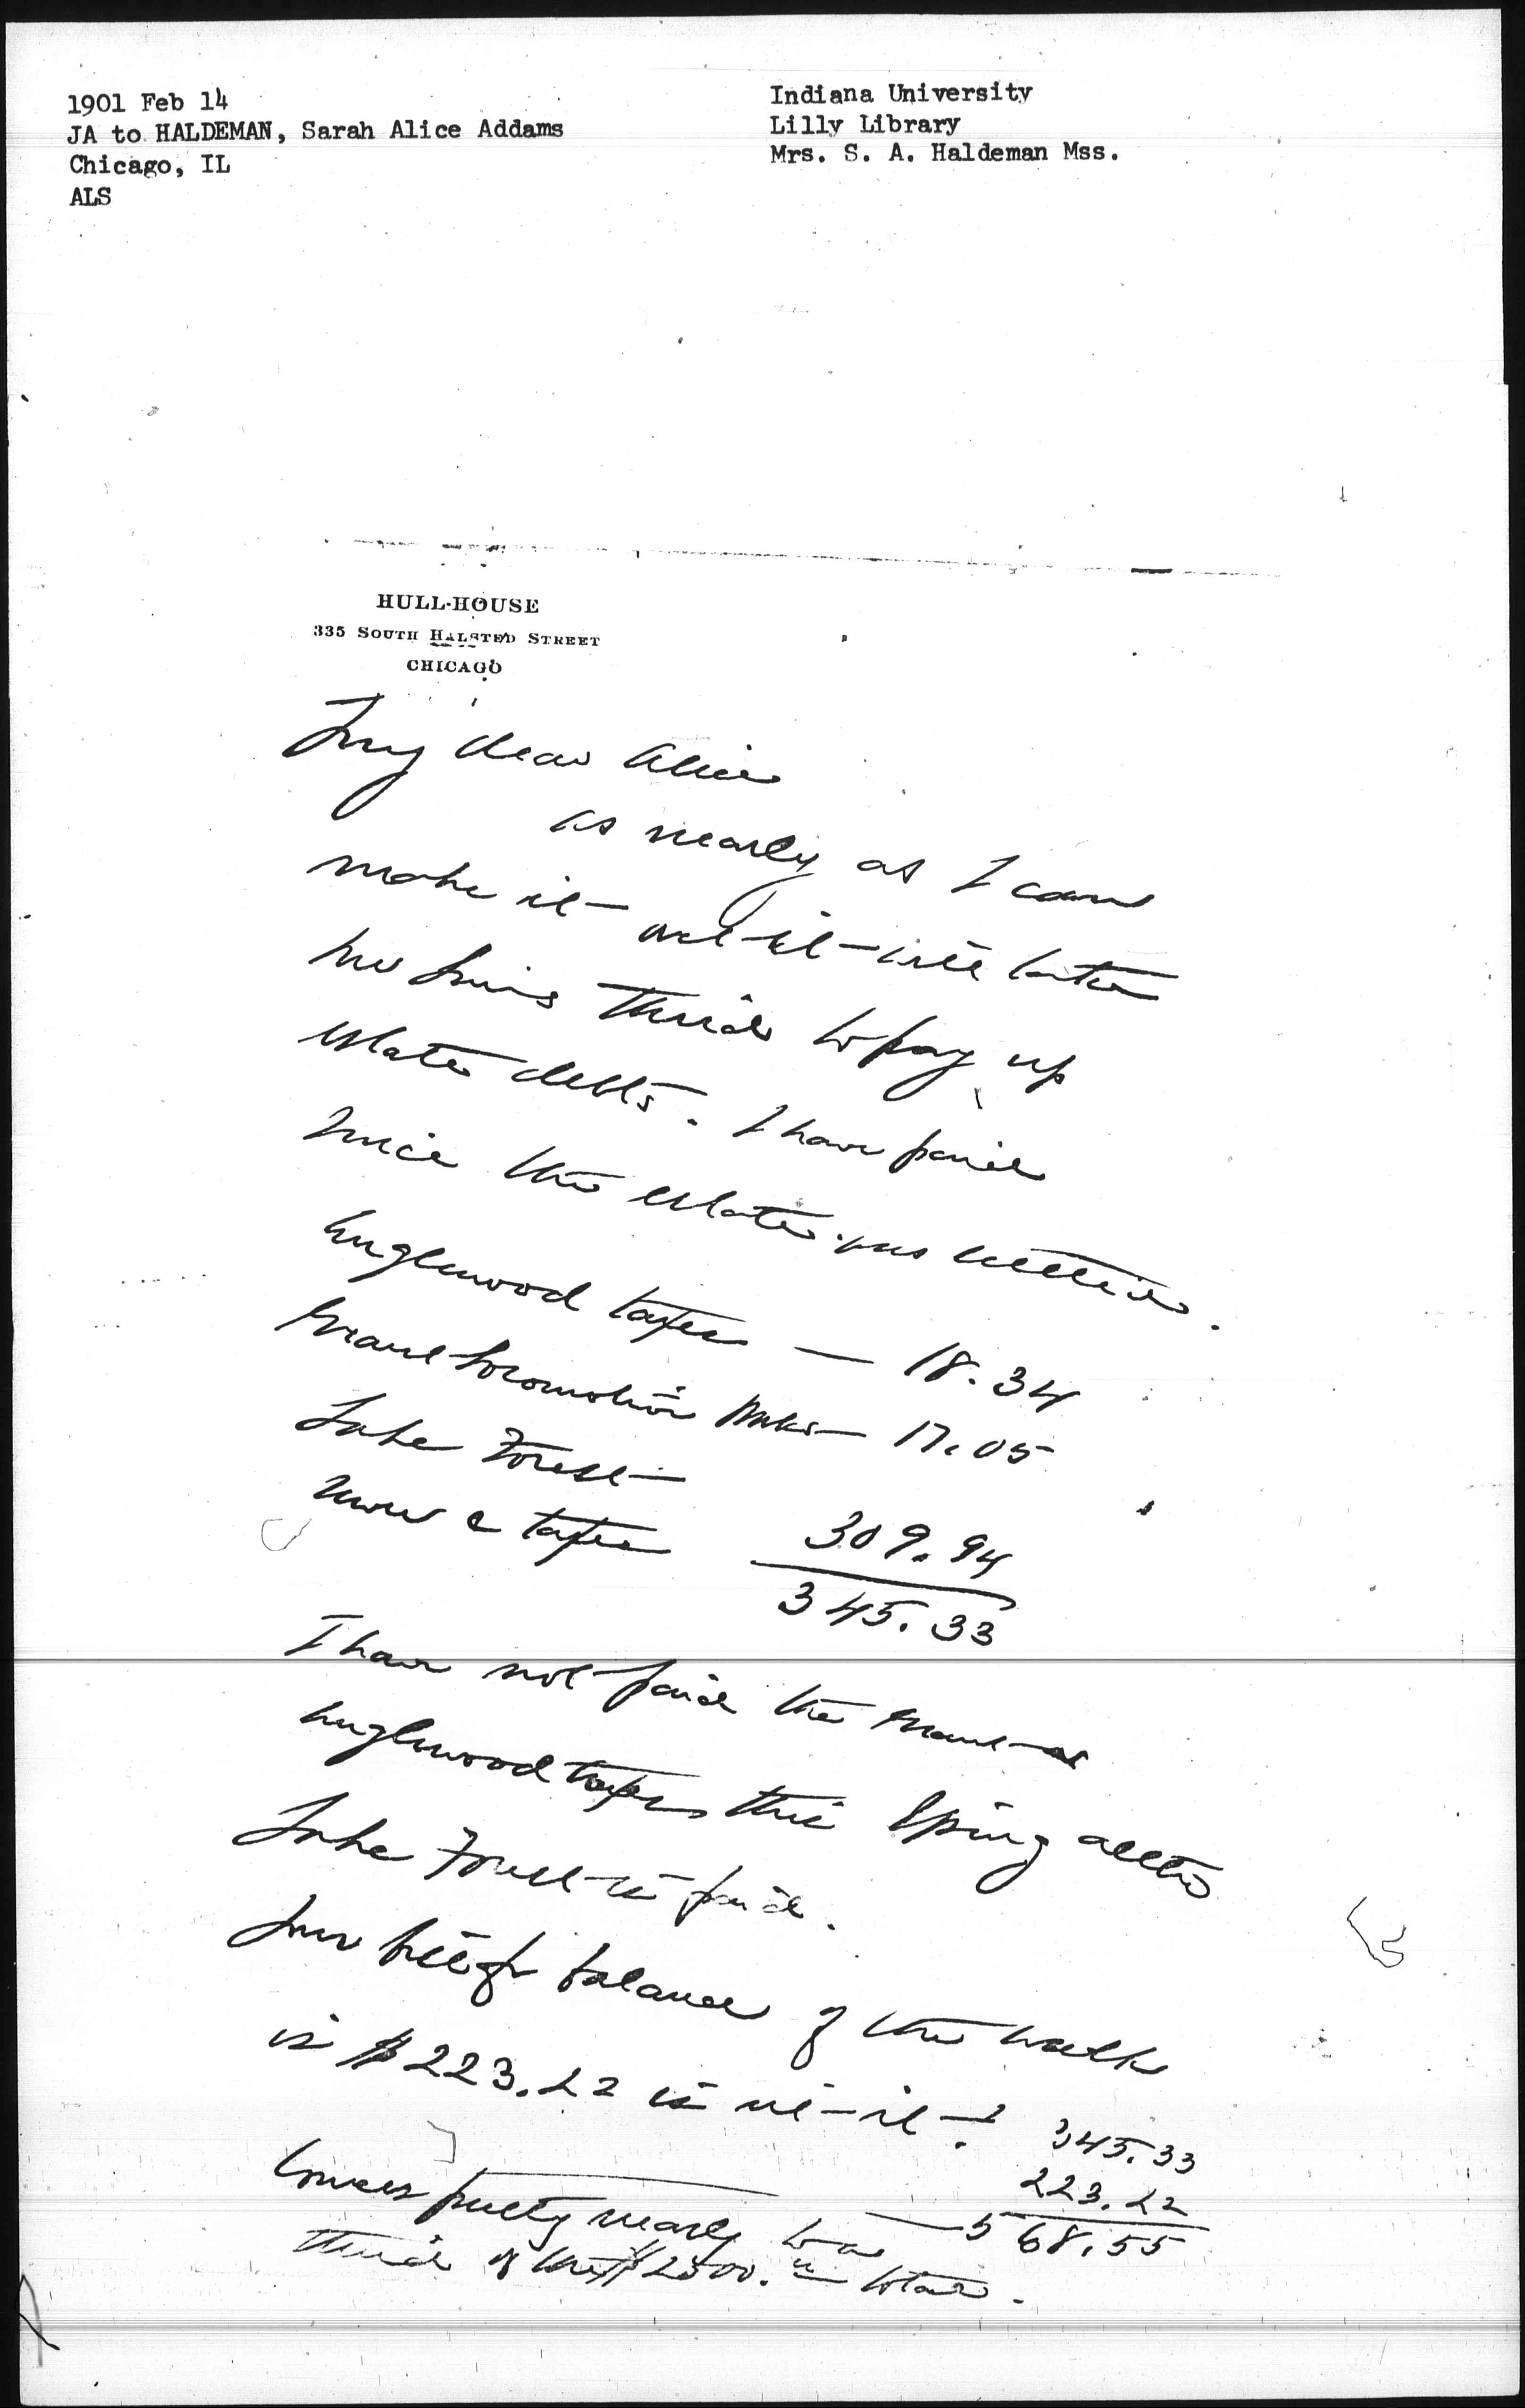 1901 Feb 14
JA to HALDEMAN, Sarah Alice Addams
Chicago, IL
ALS
Indiana University
Lilly Library
Mrs. S. A. Haldeman Mss.
HULL-HOUSE
335 SOUTH HALSTED STREET
CHICAGO
My dear Alice
As nearly as I can
make it out it will take
two thirds to pay up
estate debts. I have paid
since the estate was settled.
Englewood taxes — 18.34
Grant Locomotive Works — 17.05
Lake Forest
& taxes 309.94
345.33
I have not paid the Grant or
Englewood taxes this Spring altho
Lake Forest is paid.
Your bill for balance of the walk
is $223.22 is it not?
345.33
223.22
568.55
Comes pretty nearly two
thirds of the